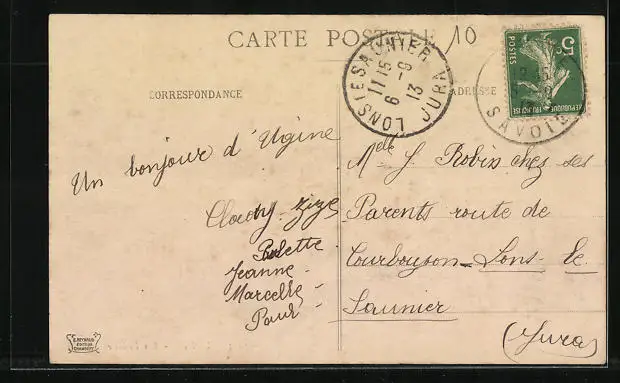 CARTE POSTALE
10
CORRESPONDANCE
ADRESSE
LONS-LE-SAUNIER JURA
11 15
6 -9
13
SAVOIE
5c
POSTES
REPUBLIQUE FRANÇAISE
Un bonjour d'Ugine
Zize
Paulette
Jeanne
Marcelle
Paul
Melle J. Robin chez ses
Parents route de
Courbouzon - Lons-le-
Saunier
(Jura)
E. REYNAUD
EDITEUR
CHAMBERY